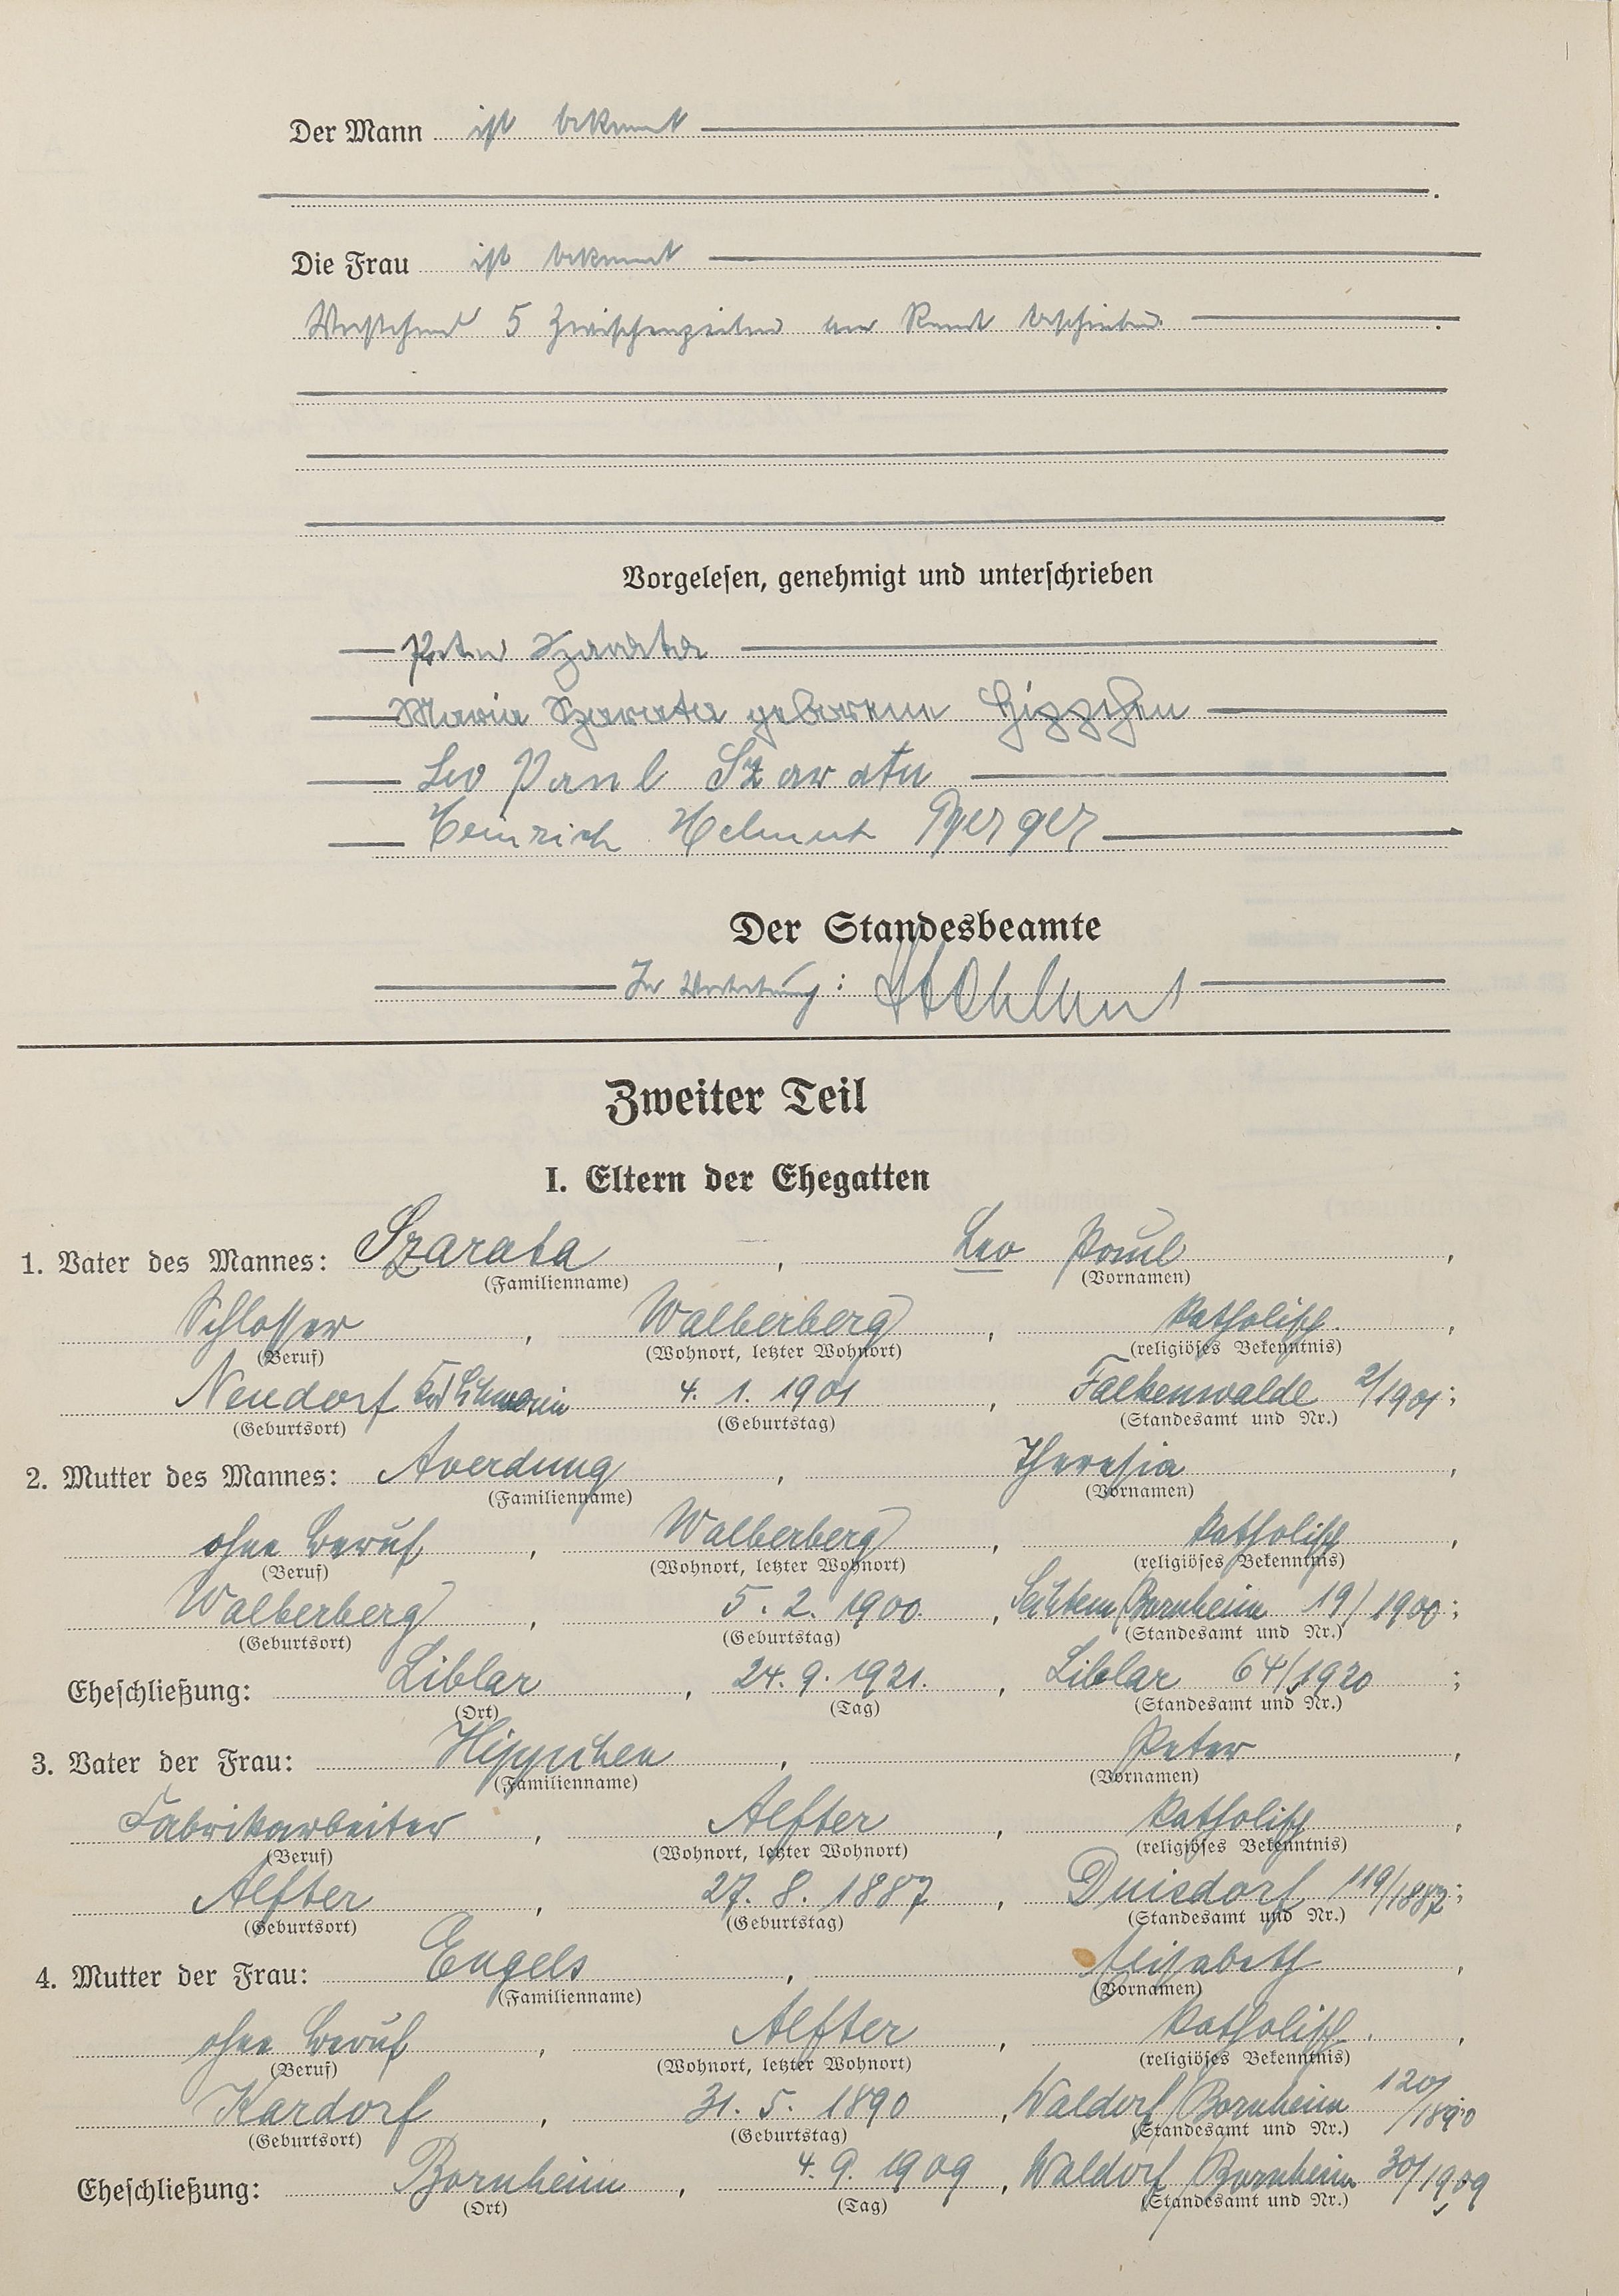 Der Mann ist bekannt
Die Frau ist bekannt
Vorstehend 5 Zwischenzeilen am Rand beschrieben.
Vorgelesen, genehmigt und unterschrieben
Peter Szarata
Maria Szarata geborene Hippchen
Leo Paul Szarata
Heinrich Helmut Berger
Der Standesbeamte
In Vertretung:
Zweiter Teil
I. Eltern der Ehegatten
1. Vater des Mannes: Szarata, Leo Paul,
(Familienname) (Vornamen)
Schlosser, Walberberg, katholisch.,
(Beruf) (Wohnort, letzter Wohnort) (religiöses Bekenntnis)
Neudorf 4. 1. 1901, Falkenwalde 2/1901;
(Geburtsort) (Geburtstag) (Standesamt und Nr.)
2. Mutter des Mannes: Averdung, Theresia,
(Familienname) (Vornamen)
ohne Beruf, Walberberg, katholisch,
(Beruf) (Wohnort, letzter Wohnort) (religiöses Bekenntnis)
Walberberg, 5. 2. 1900, Sechtem/Bornheim 19/1900;
(Geburtsort) (Geburtstag) (Standesamt und Nr.)
Eheschließung: Liblar, 24. 9. 1921., Liblar 64/1920;
(Ort) (Tag) (Standesamt und Nr.)
3. Vater der Frau: Hippchen, Peter,
(Familienname) (Vornamen)
Fabrikarbeiter, Alfter, katholisch,
(Beruf) (Wohnort, letzter Wohnort) (religiöses Bekenntnis)
Alfter, 27. 8. 1887, Duisdorf 119/1887;
(Geburtsort) (Geburtstag) (Standesamt und Nr.)
4. Mutter der Frau: Engels, Elisabeth,
(Familienname) (Vornamen)
ohne Beruf, Alfter, katholisch.,
(Beruf) (Wohnort, letzter Wohnort) (religiöses Bekenntnis)
Kardorf, 31. 5. 1890, Waldorf/Bornheim 120/1890
(Geburtsort) (Geburtstag) (Standesamt und Nr.)
Eheschließung: Bornheim, 4. 9. 1909, Waldorf/Bornheim 30/1909
(Ort) (Tag) (Standesamt und Nr.)